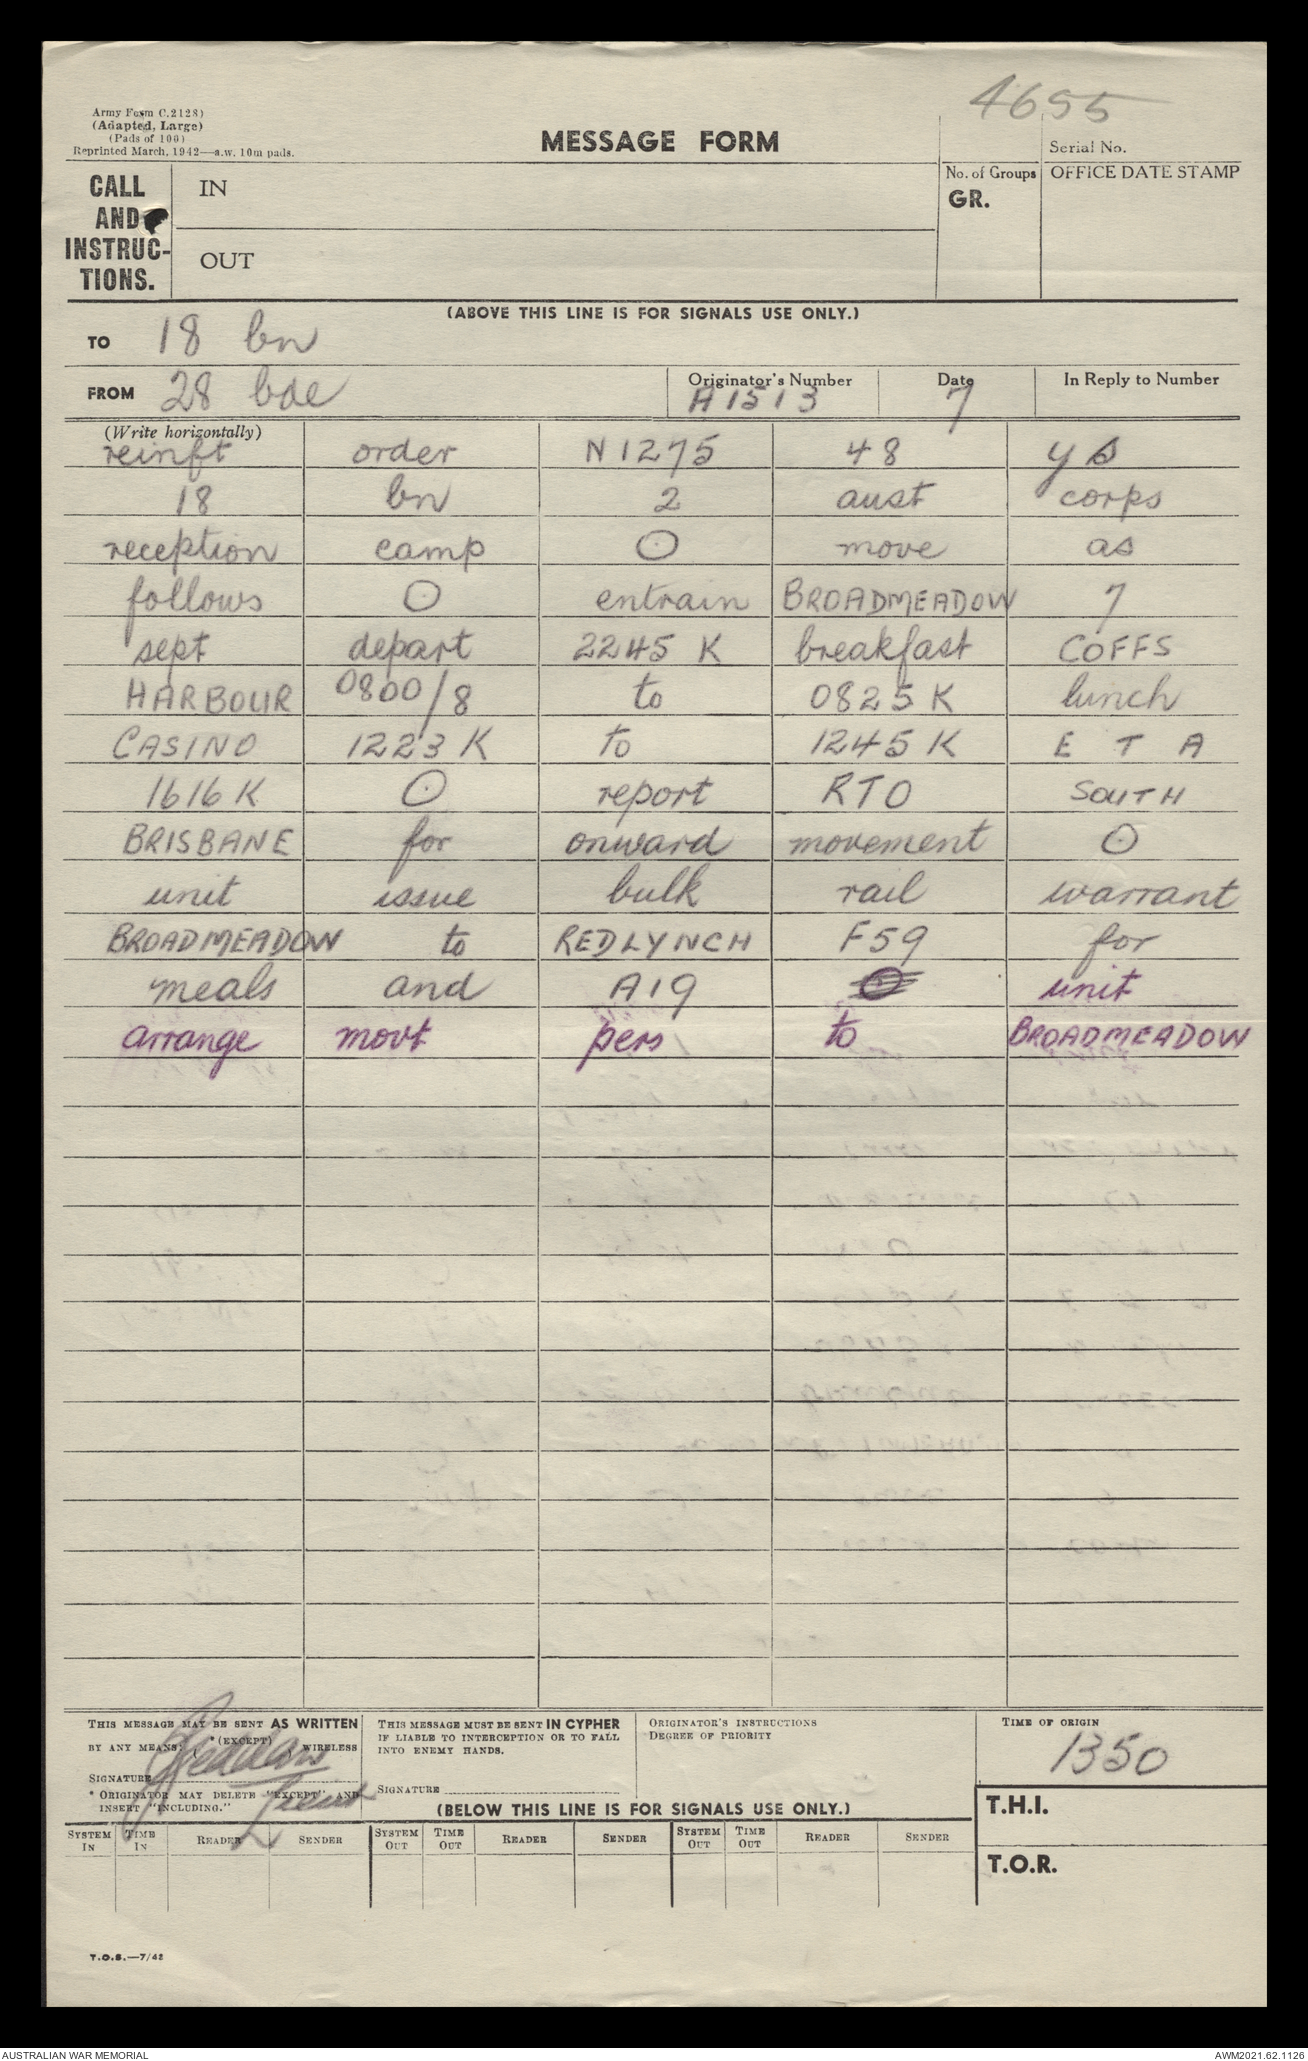 4655
Army Form C.2128)
(Adapted, Large)
(Pads of 100)
Reprinted March, 1942—a.w. 10m pads.
MESSAGE FORM
Serial No.
CALL AND INSTRUC-TIONS.
IN
OUT
No. of Groups
GR.
OFFICE DATE STAMP
(ABOVE THIS LINE IS FOR SIGNALS USE ONLY.)
TO 18 bn
FROM 28 bde
Originator's Number A1513
Date 7
In Reply to Number
(Write horizontally)
reinft order N1275 48
18 bn 2 aust corps
reception camp O move as
follows O entrain BROADMEADOW 7
sept depart 2245 K breakfast COFFS
HARBOUR 0800/8 to 0825 K lunch
CASINO 1223 K to 1245 K E T A
1616 K O report RTO SOUTH
BRISBANE for onward movement O
unit issue bulk rail warrant
BROADMEADOW to REDLYNCH F59 for
meals and A19 unit
arrange movt pers to BROADMEADOW
THIS MESSAGE MAY BE SENT AS WRITTEN
BY ANY MEANS: (EXCEPT) WIRELESS
SIGNATURE
Lieut
* ORIGINATOR MAY DELETE "EXCEPT" AND
INSERT "INCLUDING."
THIS MESSAGE MUST BE SENT IN CYPHER
IF LIABLE TO INTERCEPTION OR TO FALL
INTO ENEMY HANDS.
SIGNATURE
ORIGINATOR'S INSTRUCTIONS
DEGREE OF PRIORITY
TIME OF ORIGIN
1350
(BELOW THIS LINE IS FOR SIGNALS USE ONLY.)
T.H.I.
SYSTEM IN TIME IN READER SENDER SYSTEM OUT TIME OUT READER SENDER SYSTEM OUT TIME OUT READER SENDER
T.O.R.
T.O.S.—7/42
AUSTRALIAN WAR MEMORIAL
AWM2021.62.1126